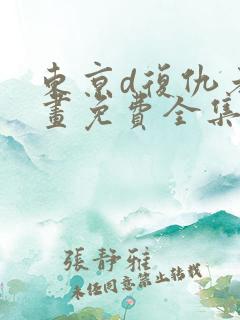 東京d復仇者
畫免費全集
張靜雅
未经同意禁止转载